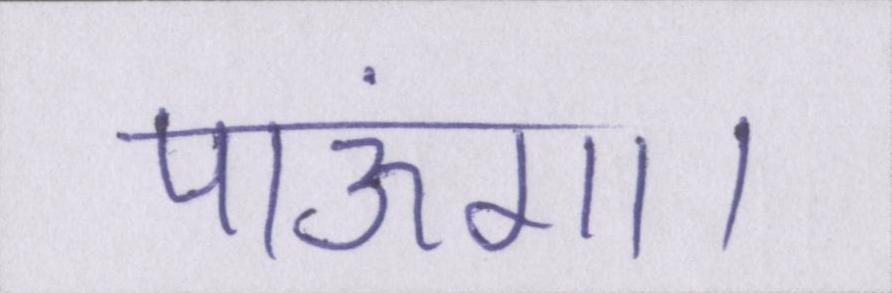 पाऊंगा।